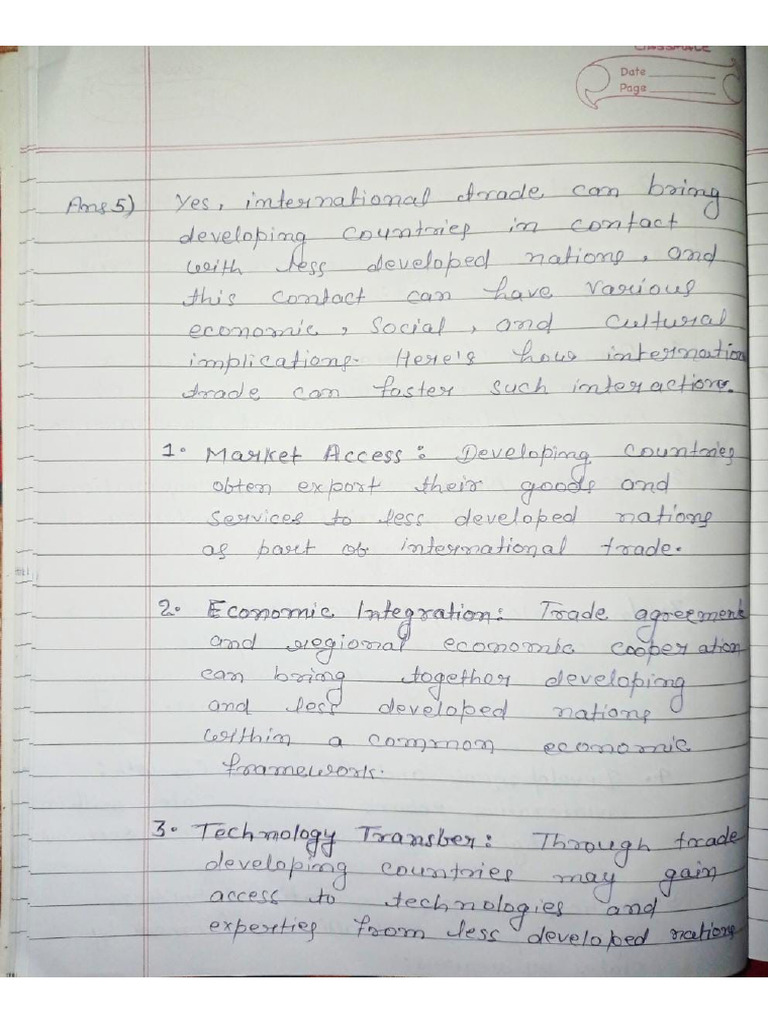 classmate
Date
Page
Ans 5) Yes, international trade can bring
developing countries in contact
with less developed nations, and
this contact can have various
economic, social, and cultural
implications. Here's how internation
trade can foster such interactions.
1. Market Access: Developing countries
often export their goods and
services to less developed nations
as part of international trade.
2. Economic Integration: Trade agreement
and regional economic cooperation
can bring together developing
and less developed nations
within a common economic
framework.
3. Technology Transfer: Through trade
developing countries may gain
access to technologies and
experties from less developed nations